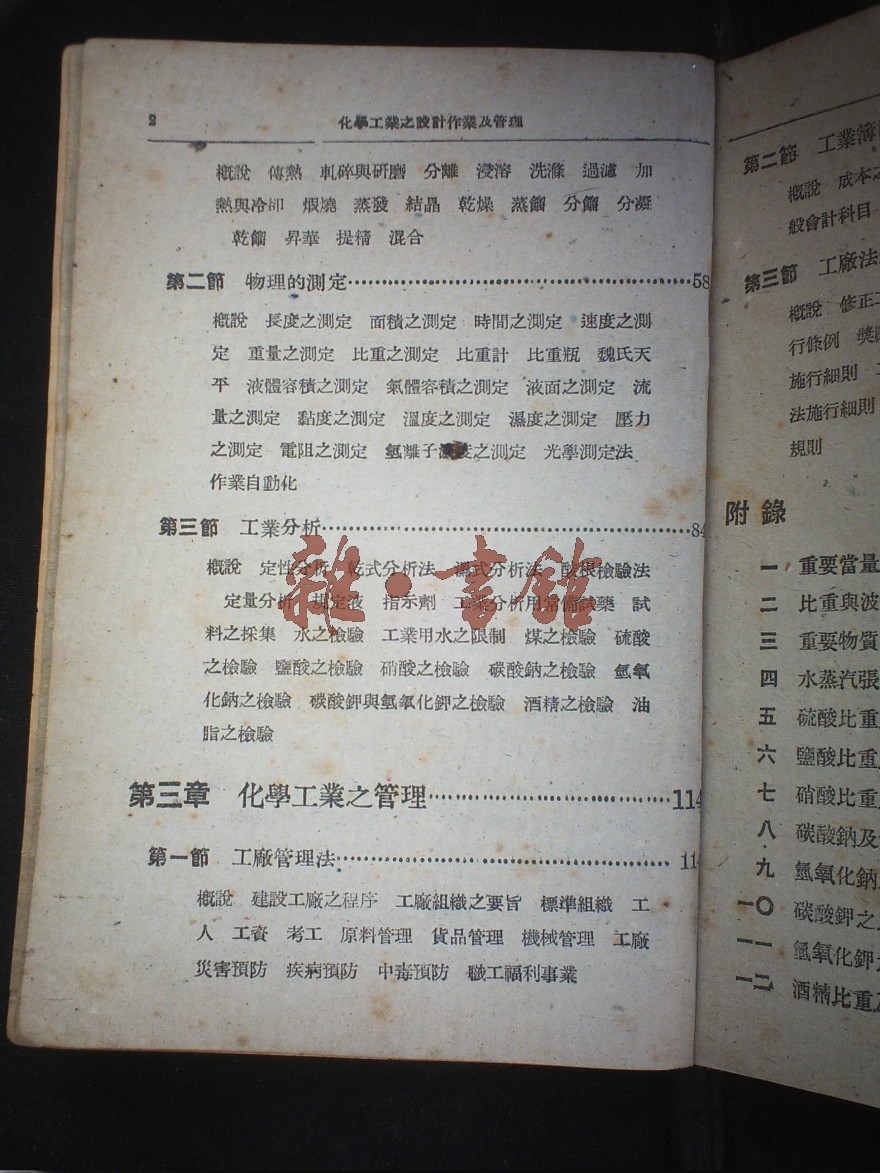 2
化學工業之設計作業及管理
概說 傳熱 軋碎與研磨 分離 浸溶 洗滌 過濾 加
熱與冷却 煅燒 蒸發 結晶 乾燥 蒸餾 分餾 分凝
乾餾 昇華 提精 混合
第二節 物理的測定……58
概說 長度之測定 面積之測定 時間之測定 速度之測
定 重量之測定 比重之測定 比重計 比重瓶 魏氏天
平 液體容積之測定 氣體容積之測定 液面之測定 流
量之測定 黏度之測定 溫度之測定 濕度之測定 壓力
之測定 電阻之測定 氫離子濃度之測定 光學測定法
作業自動化
第三節 工業分析……84
概說 定性分析 乾式分析法 濕式分析法 酸根檢驗法
定量分析 規定液 指示劑 工業分析用常備試藥 試
料之採集 水之檢驗 工業用水之限制 煤之檢驗 硫酸
之檢驗 鹽酸之檢驗 硝酸之檢驗 碳酸鈉之檢驗 氫氧
化鈉之檢驗 碳酸鉀與氫氧化鉀之檢驗 酒精之檢驗 油
脂之檢驗
雜·書館
第三章 化學工業之管理……114
第一節 工廠管理法……114
概說 建設工廠之程序 工廠組織之要旨 標準組織 工
人 工資 考工 原料管理 貨品管理 機械管理 工廠
災害預防 疾病預防 中毒預防 職工福利事業
第二節 工業簿
概說 成本之
般會計科目
第三節 工廠法
概說 修正工
行條例 獎
施行細則
法施行細則
規則
附錄
一 重要當量
二 比重與波
三 重要物質
四 水蒸汽張
五 硫酸比重
六 鹽酸比重
七 硝酸比重
八 碳酸鈉及
九 氫氧化鈉
一〇 碳酸鉀之
一一 氫氧化鉀
一二 酒精比重